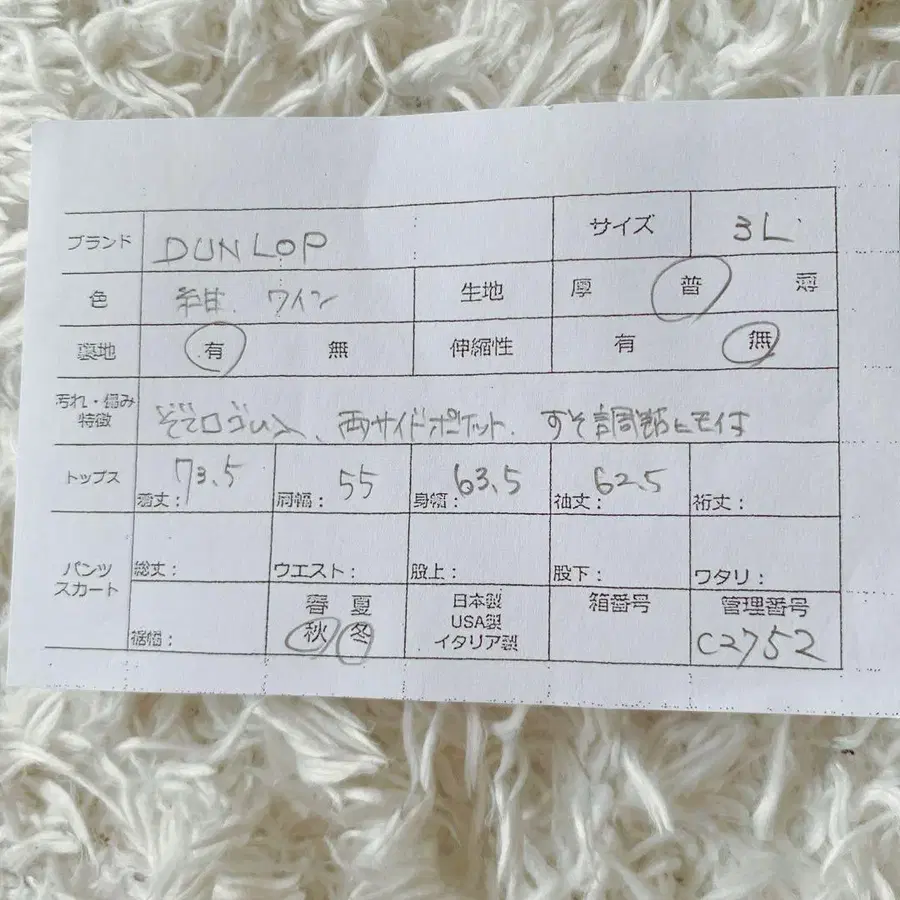 ブランド DUNLOP サイズ 3L
色 紺. ワイン 生地 厚 普 薄
裏地 有 無 伸縮性 有 無
汚れ・傷み
特徴 そで口ゴム入、両サイドポケット. すそ調節ヒモ付
トップス 着丈: 73.5 肩幅: 55 身幅: 63.5 袖丈: 62.5 裄丈:
パンツ
スカート 総丈: ウエスト: 股上: 股下: ワタリ:
裾幅: 春 夏
秋 冬
日本製
USA製
イタリア製
箱番号
管理番号
C2752